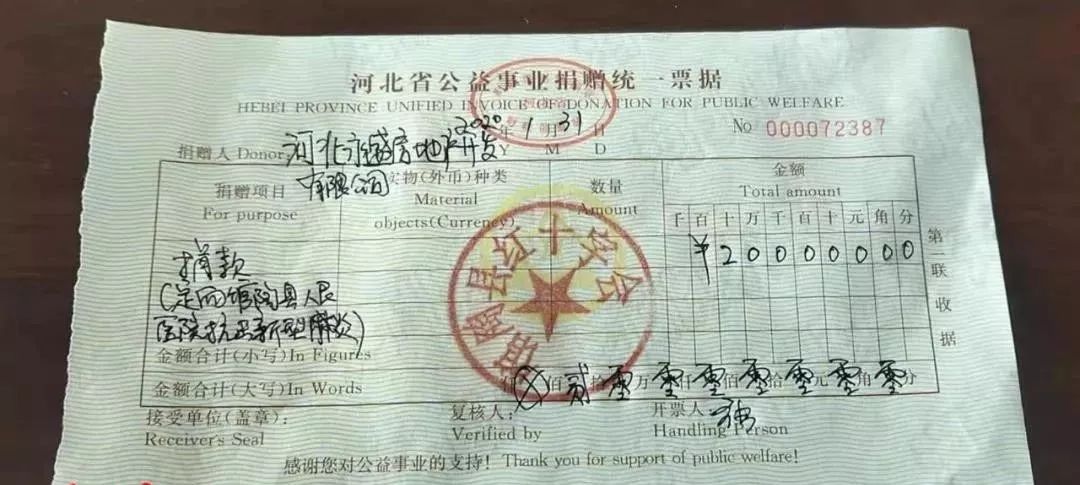 河北省公益事业捐赠统一票据
HEBEI PROVINCE UNIFIED INVOICE OF DONATION FOR PUBLIC WELFARE
2020年1月31日
Y M D
No 000072387
捐赠人Donor:河北永盛房地产开发
有限公司
捐赠项目
For purpose
实物(外币)种类
Material
objects(Currency)
数量
Amount
金额
Total amount
千百十万千百十元角分
¥200000000
捐款
(定向馆陶县人民
医院抗击新型肺炎)
第一联收据
馆陶县红十字会
金额合计(小写)In Figures
金额合计(大写)In Words
仟⊗佰贰拾零万零仟零佰零拾零元零角零分
接受单位(盖章):
Receiver's Seal
复核人:
Verified by
开票人:
Handling Person
感谢您对公益事业的支持! Thank you for support of public welfare!